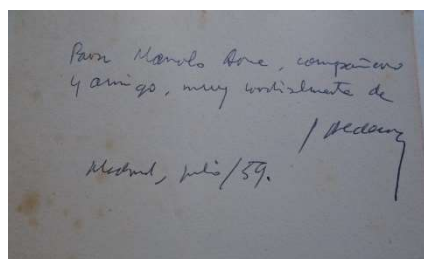 Para Manolo Arce, compañero
y amigo, muy cordialmente de
Madrid, julio/59.